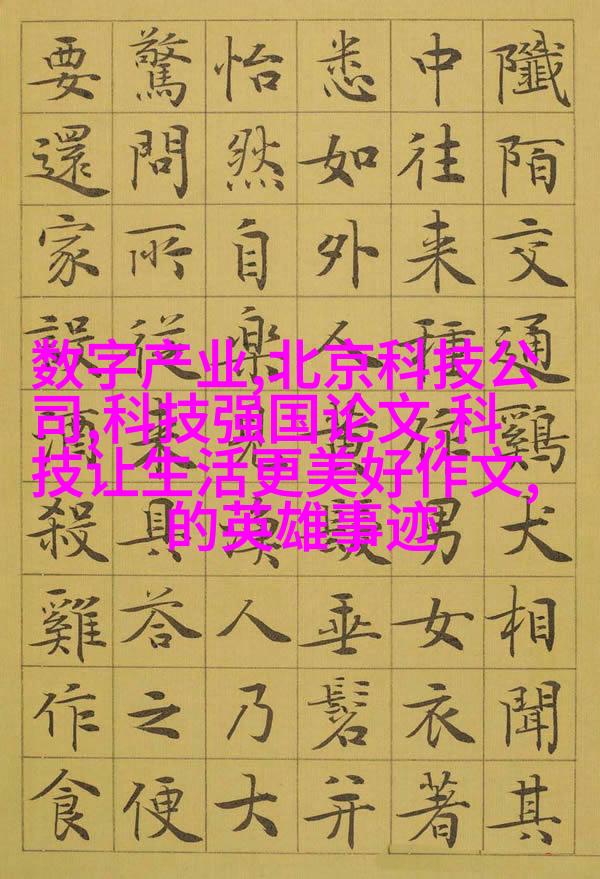 陌交通鷄犬相聞其
中往来種作男女衣著
悉如外人黄髮垂髫并
怡然自樂見漁人乃大
驚問所從来具荅之便
要還家設酒殺雞作食
数字产业,北京科技公
司,科技强国论文,科
技让生活更美好作文,
的英雄事迹